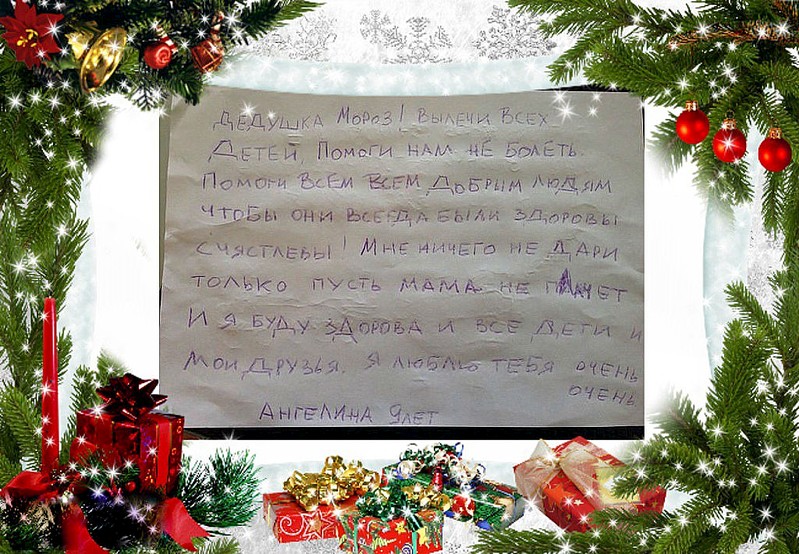 ДЕДУШКА МОРОЗ! ВЫЛЕЧИ ВСЕХ
ДЕТЕЙ, ПОМОГИ НАМ НЕ БОЛЕТЬ.
ПОМОГИ ВСЕМ ВСЕМ ДОБРИМ ЛЮДЯМ
ЧТОБЫ ОНИ ВСЕГДА БЫЛИ ЗДОРОВЫ
СЧЯСТЛЕВЫ! МНЕ НИЧЕГО НЕ ДАРИ
ТОЛЬКО ПУСТЬ МАМА НЕ
И Я БУДУ ЗДОРОВА И ВСЕ ДЕТИ И
МОИ ДРУЗЬЯ. Я ЛЮБЛЮ ТЕБЯ ОЧЕНЬ
ОЧЕНЬ
АНГЕЛИНА 9 ЛЕТ